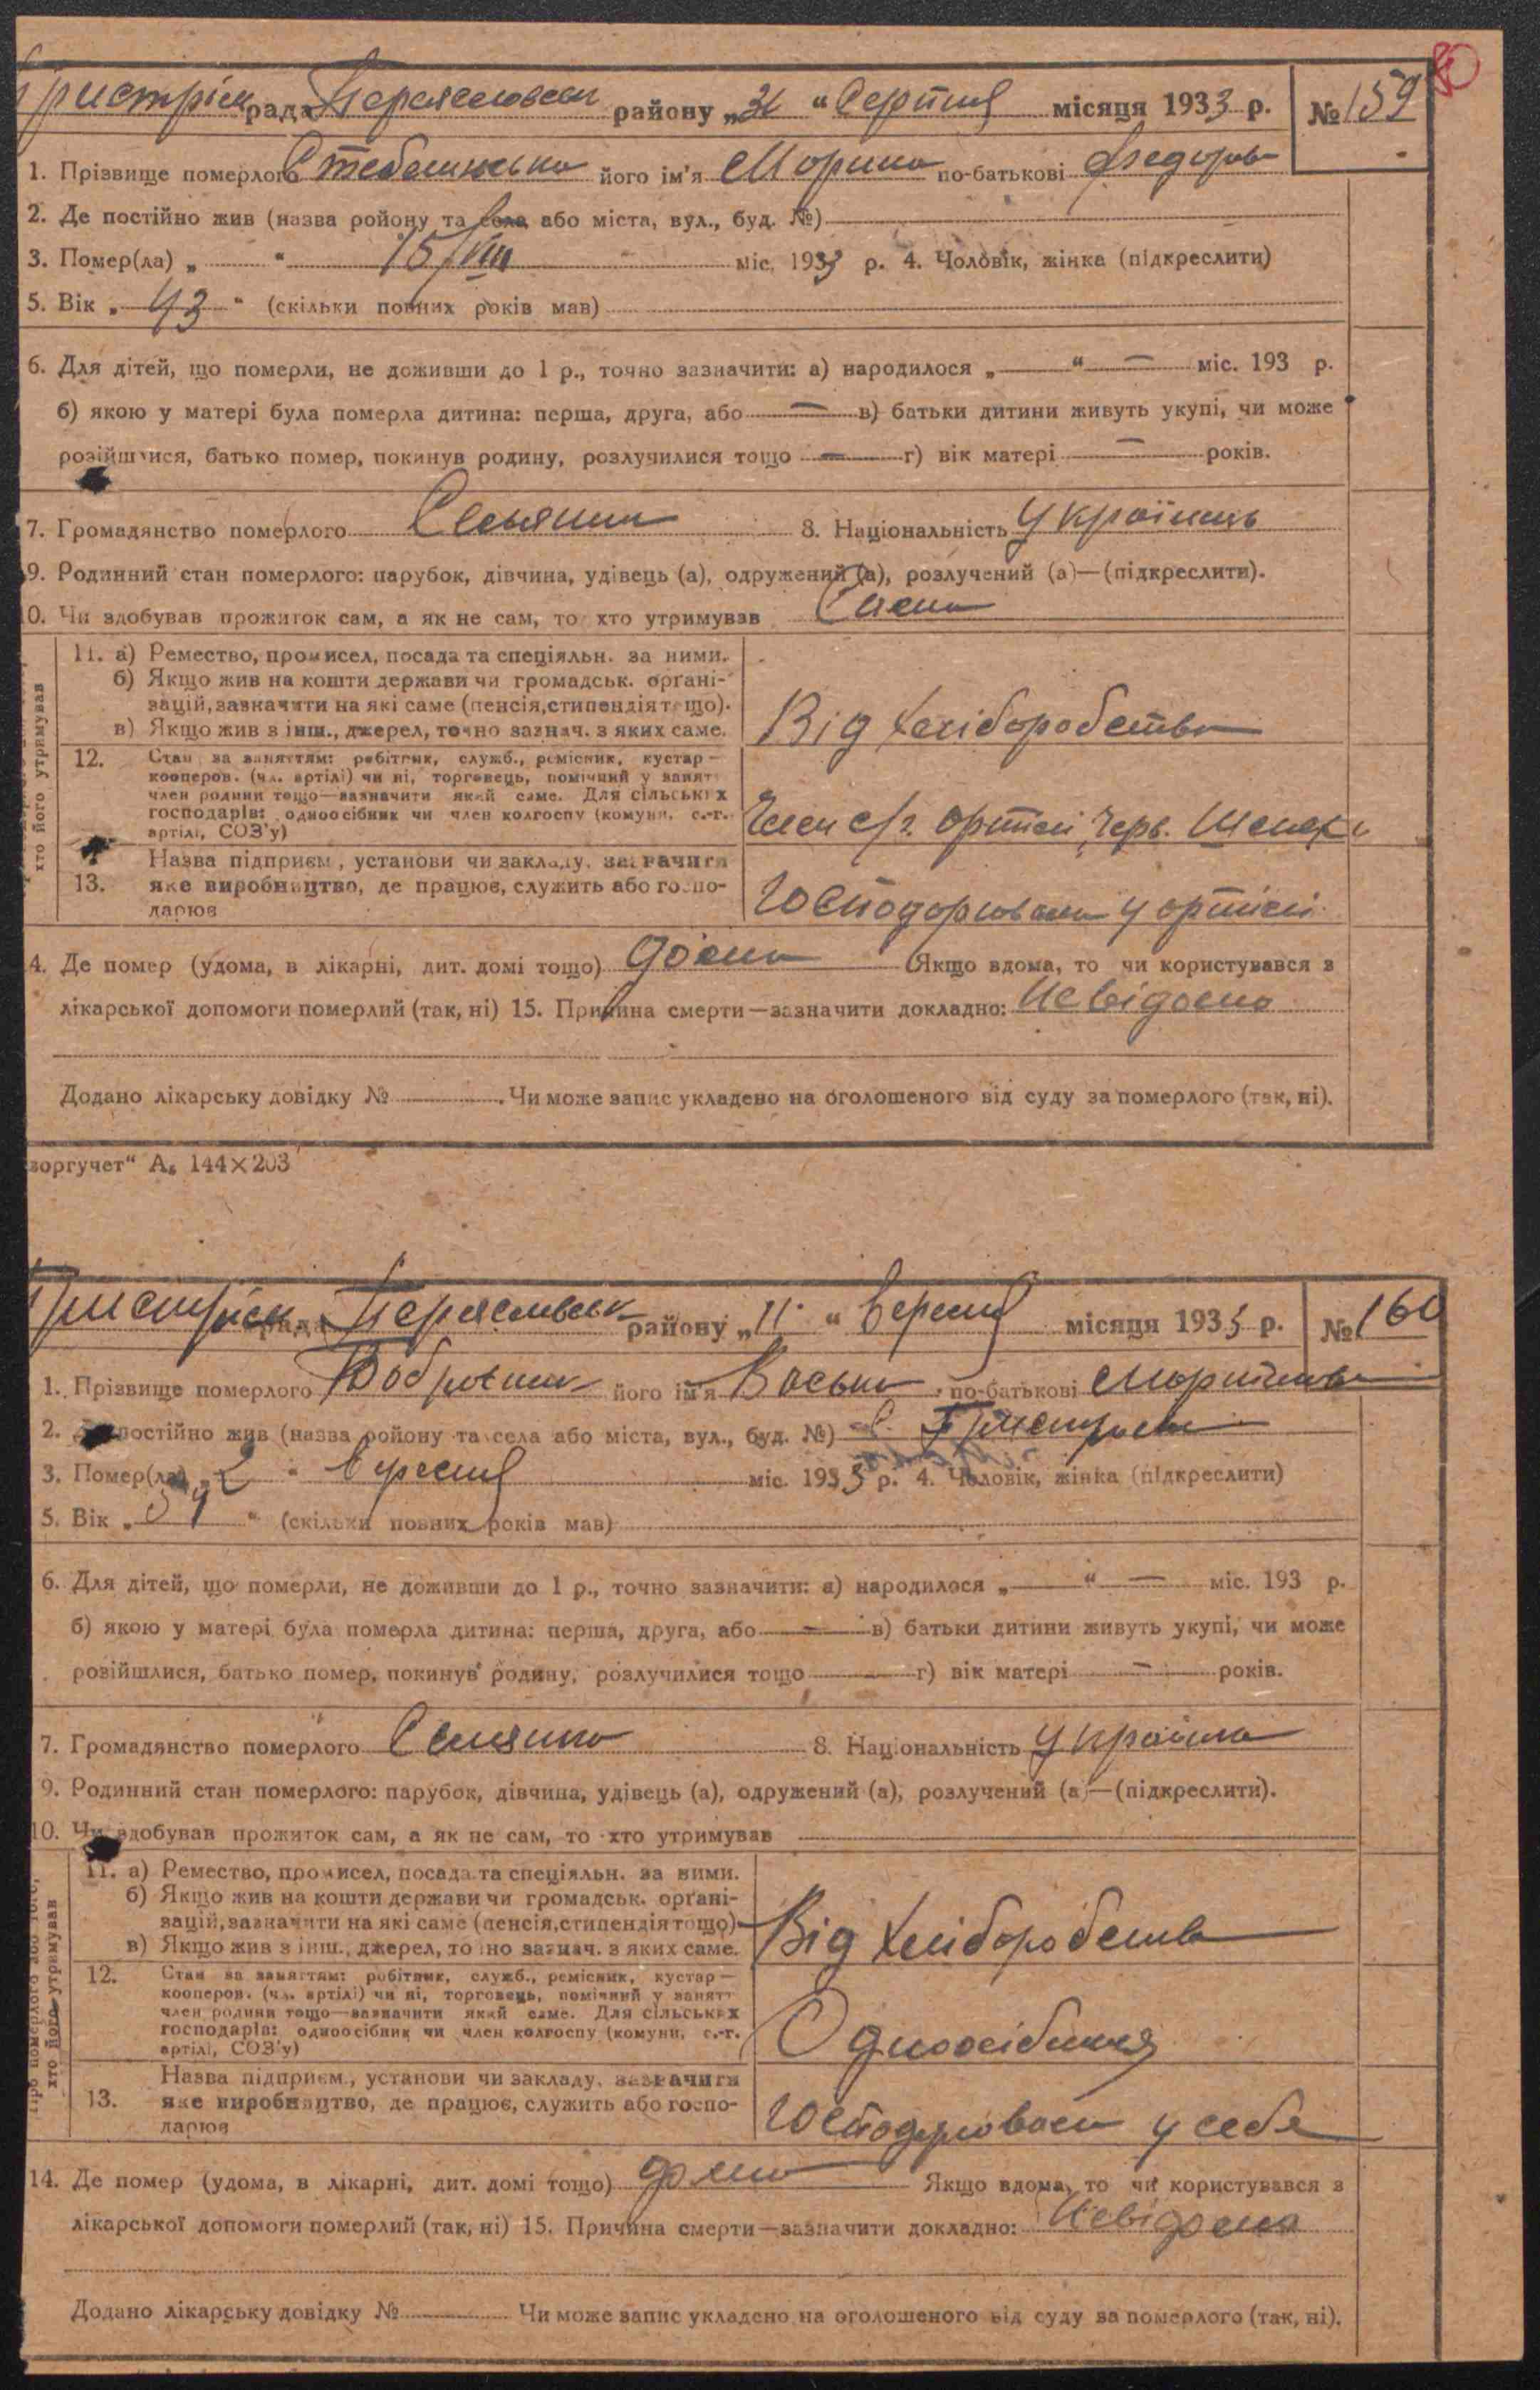 80
рада району „31 “ Серпня місяця 1933 р. № 159
1. Прізвище померлого його ім'я по-батькові Федоров
2. Де постійно жив (назва ройону та села або міста, вул., буд. №)
3. Помер(ла) „ “ 15/VIII міс. 1933 р. 4. Чоловік, жінка (підкреслити)
5. Вік „ 43 “ (скільки повних років мав)
6. Для дітей, що померли, не доживши до 1 р., точно зазначити: а) народилося „ “ — міс. 193 р.
б) якою у матері була померла дитина: перша, друга, або — в) батьки дитини живуть укупі, чи може
розійшлися, батько помер, покинув родину, розлучилися тощо — г) вік матері — років.
7. Громадянство померлого 8. Національність Українець
9. Родинний стан померлого: парубок, дівчина, удівець (а), одружений (а), розлучений (а)—(підкреслити).
10. Чи здобував прожиток сам, а як не сам, то хто утримував
хто його утримував
11. а) Ремество, промисел, посада та спеціяльн. за ними.
б) Якщо жив на кошти держави чи громадськ. орґані-
зацій, зазначити на які саме (пенсія, стипендія тощо).
в) Якщо жив з інш., джерел, точно зазнач. з яких саме.
Від Хліборобства
12. Стан за заняттям: робітник, служб., ремісник, кустар—
кооперов. (чл. артілі) чи ні, торговець, помічний у занятт
член родини тощо—зазначити який саме. Для сільських
господарів: одноосібник чи член колгоспу (комуни, с.-г.
артілі, СОЗ'у)
Член с/г. артілі Черв.
Назва підприєм., установи чи закладу, зазначити
13. яке виробництво, де працює, служить або госпо-
дарює
Господарювала у артілі
14. Де помер (удома, в лікарні, дит. домі тощо) дома Якщо вдома, то чи користувався з
лікарської допомоги померлий (так, ні) 15. Причина смерти—зазначити докладно: Невідома
Додано лікарську довідку № Чи може запис укладено на оголошеного від суду за померлого (так, ні).
воргучет“ А₆ 144×203
рада району „11 “ вересня місяця 1933 р. № 160
1. Прізвище померлого його ім'я по-батькові
2. Де постійно жив (назва ройону та села або міста, вул., буд. №) с.
3. Помер(ла) „ 2 “ вересня міс. 1933 р. 4. Чоловік, жінка (підкреслити)
5. Вік „ 39 “ (скільки повних років мав)
6. Для дітей, що померли, не доживши до 1 р., точно зазначити: а) народилося „ “ — міс. 193 р.
б) якою у матері була померла дитина: перша, друга, або — в) батьки дитини живуть укупі, чи може
розійшлися, батько помер, покинув родину, розлучилися тощо г) вік матері — років.
7. Громадянство померлого Селянин 8. Національність
9. Родинний стан померлого: парубок, дівчина, удівець (а), одружений (а), розлучений (а)—(підкреслити).
10. Чи здобував прожиток сам, а як не сам, то хто утримував
Про померлого або того,
хто його утримував
11. а) Ремество, промисел, посада та спеціяльн. за ними.
б) Якщо жив на кошти держави чи громадськ. орґані-
зацій, зазначити на які саме (пенсія, стипендія тощо)
в) Якщо жив з інш., джерел, точно зазнач. з яких саме.
Від Хліборобства
12. Стан за заняттям: робітник, служб., ремісник, кустар—
кооперов. (чл. артілі) чи ні, торговець, помічний у занятт
член родини тощо—зазначити який саме. Для сільських
господарів: одноосібник чи член колгоспу (комуни, с.-г.
артілі, СОЗ'у)
Назва підприєм., установи чи закладу, зазначити
13. яке виробництво, де працює, служить або госпо-
дарює
Господарював у себе
14. Де помер (удома, в лікарні, дит. домі тощо) дома Якщо вдома, то чи користувався з
лікарської допомоги померлий (так, ні) 15. Причина смерти—зазначити докладно: Невідома
Додано лікарську довідку № Чи може запис укладено на оголошеного від суду за померлого (так, ні).